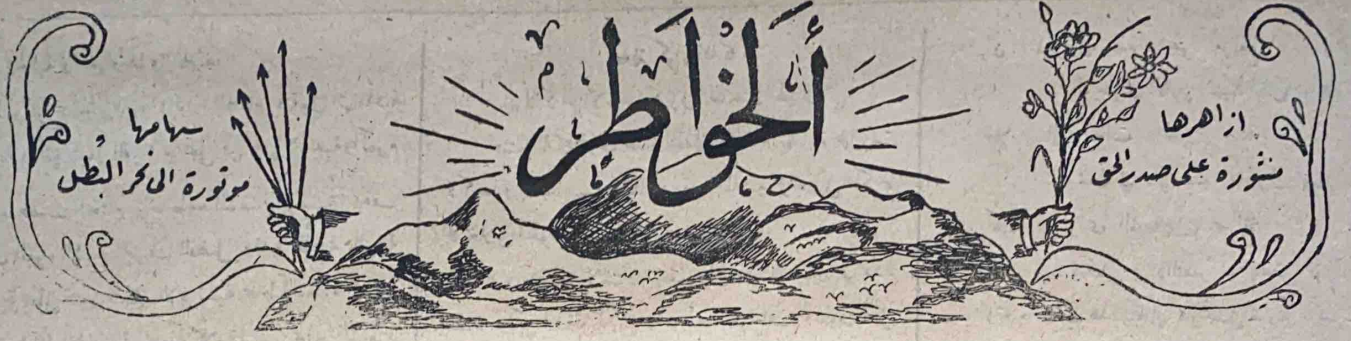 أَلخواطر
ازاهرها
منثورة على صدر الحق
سهامها
موتورة الى نحر البُطل